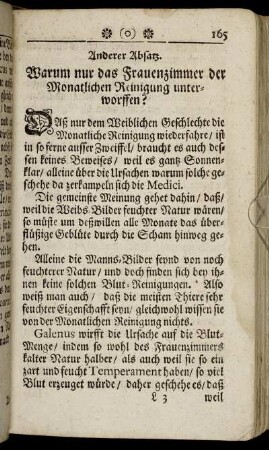 165
Anderer Absatz.
Warum nur das Frauenzimmer der
Monatlichen Reinigung unter-
worffen?
DAß nur dem Weiblichen Geschlechte die
Monatliche Reinigung wiederfahre/ ist
in so ferne ausser Zweiffel/ braucht es auch des-
sen keines Beweises/ weil es gantz Sonnen-
klar/ alleine über die Ursachen warum solche ge-
schehe da zerkampeln sich die Medici.
Die gemeinste Meinung gehet dahin/ daß/
weil die Weibs-Bilder feuchter Natur wären/
so müste um deßwillen alle Monate das über-
flüßige Geblüte durch die Scham hinweg ge-
hen.
Alleine die Manns-Bilder seynd von noch
feuchterer Natur/ und doch finden sich bey ih-
nen keine solchen Blut-Reinigungen. Also
weiß man auch / daß die meisten Thiere sehr
feuchter Eigenschafft seyn/ gleichwohl wissen sie
von der Monatlichen Reinigung nichts.
Galenus wirfft die Ursache auf die Blut-
Menge/ indem so wohl des Frauenzimmers
kalter Natur halber/ als auch weil sie so ein
zart und feucht Temperament haben/ so viel
Blut erzeuget würde/ daher geschehe es/ daß
L 3 weil